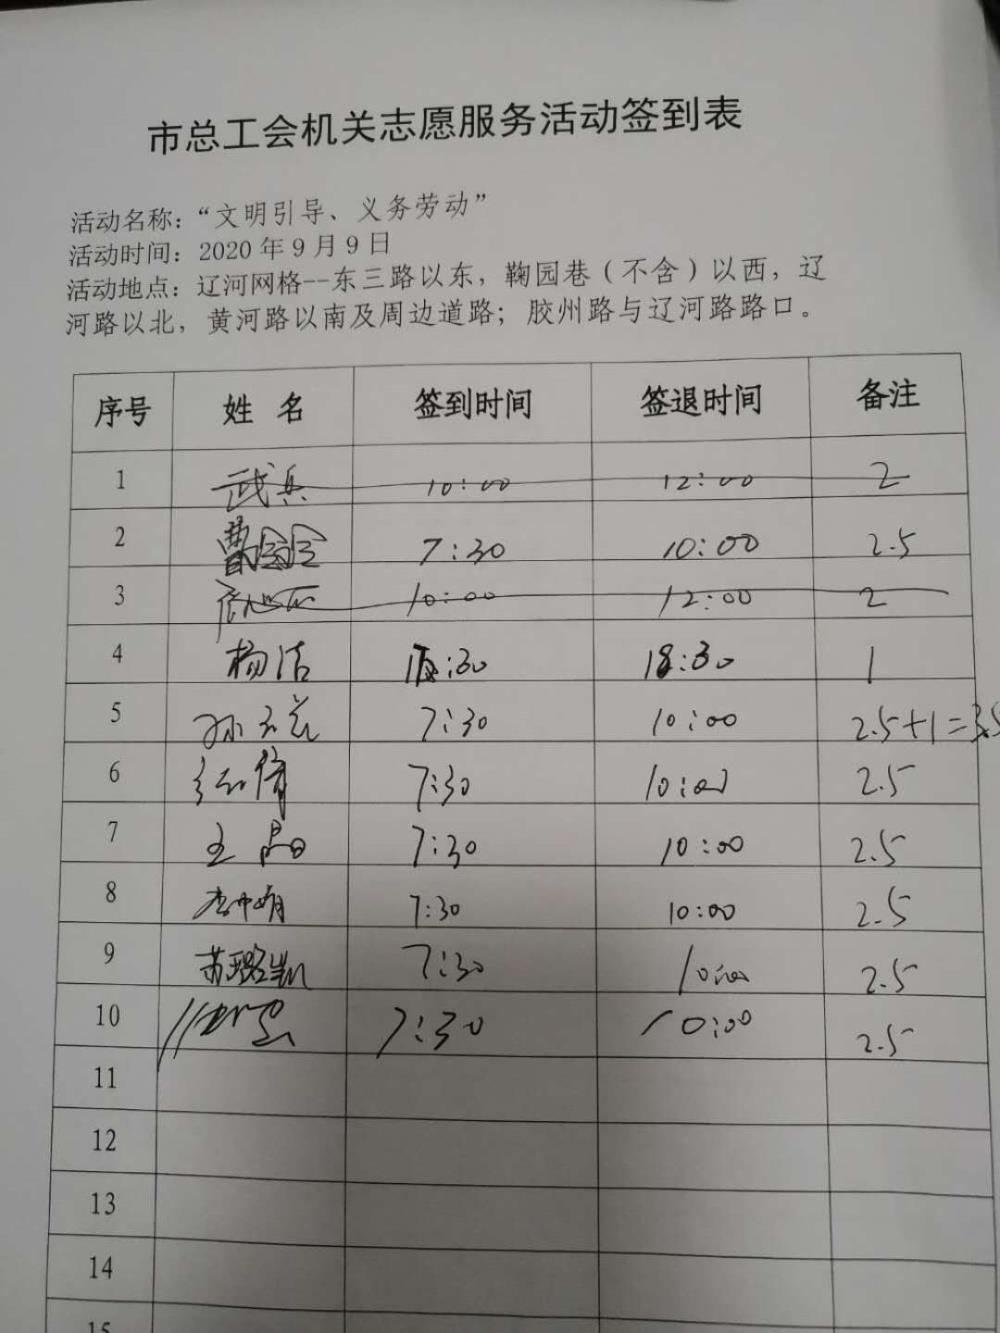 市总工会机关志愿服务活动签到表
活动名称：“文明引导、义务劳动”
活动时间：2020年9月9日
活动地点：辽河网格--东三路以东，鞠园巷（不含）以西，辽
河路以北，黄河路以南及周边道路；胶州路与辽河路路口。
序号 姓 名 签到时间 签退时间 备注
1 武兵 10:00 12:00 2
2 7:30 10:00 2.5
3 10:00 12:00 2
4 杨洁 :30 18:30 1
5 7:30 10:00 2.5+1=3.5
6 7:30 10:00 2.5
7 王晶 7:30 10:00 2.5
8 7:30 10:00 2.5
9 苏璐凯 7:30 10:00 2.5
10 7:30 10:00 2.5
11
12
13
14
15